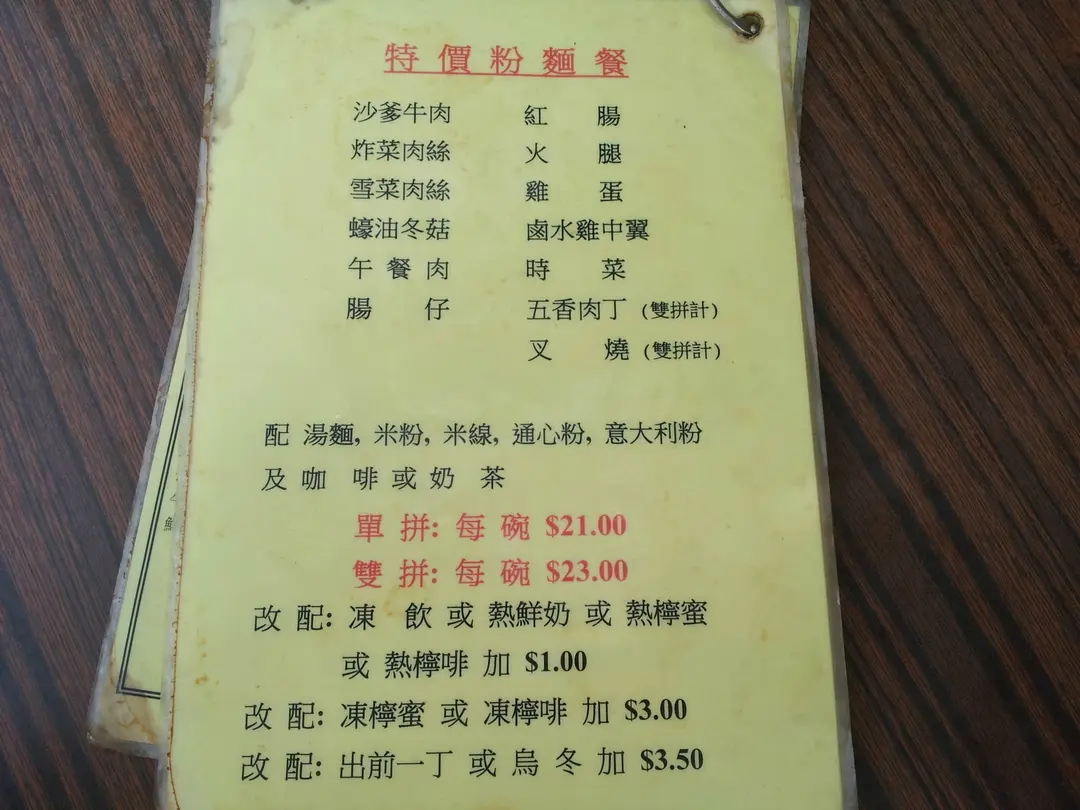 特價粉麵餐
沙爹牛肉 紅腸
炸菜肉絲 火腿
雪菜肉絲 雞蛋
蠔油冬菇 鹵水雞中翼
午餐肉 時菜
腸仔 五香肉丁 (雙拼計)
叉燒 (雙拼計)
配 湯麵, 米粉, 米線, 通心粉, 意大利粉
及咖啡或奶茶
單拼: 每碗 $21.00
雙拼: 每碗 $23.00
改配: 凍飲 或 熱鮮奶 或 熱檸蜜
或 熱檸啡 加 $1.00
改配: 凍檸蜜 或 凍檸啡 加 $3.00
改配: 出前一丁 或 烏冬 加 $3.50